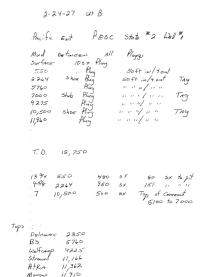 2-24-27 Ut B
Pacific Ent PESC State #2 Well #1
Mud between All Plugs
Surface 10sx Plug
550 Plug Soft in/4out
2264 Shoe Plug Soft in/4out Tag
5760 Plug " "/ "
7000 Stub Plug " "/ " Tag
9275 Plug " "/ "
10,500 Shoe Plug " "/ " Tag
11,960 Plug " "/ "
T.D. 12,750
13 3/8 550
9 5/8 2264
7 10,500 Top of Cement
6100 to 7000
Tops
Delaware 2350
BS 5760
Wolfcamp 9225
Strawn 11,166
Atoka 11,362
Morrow 11,910